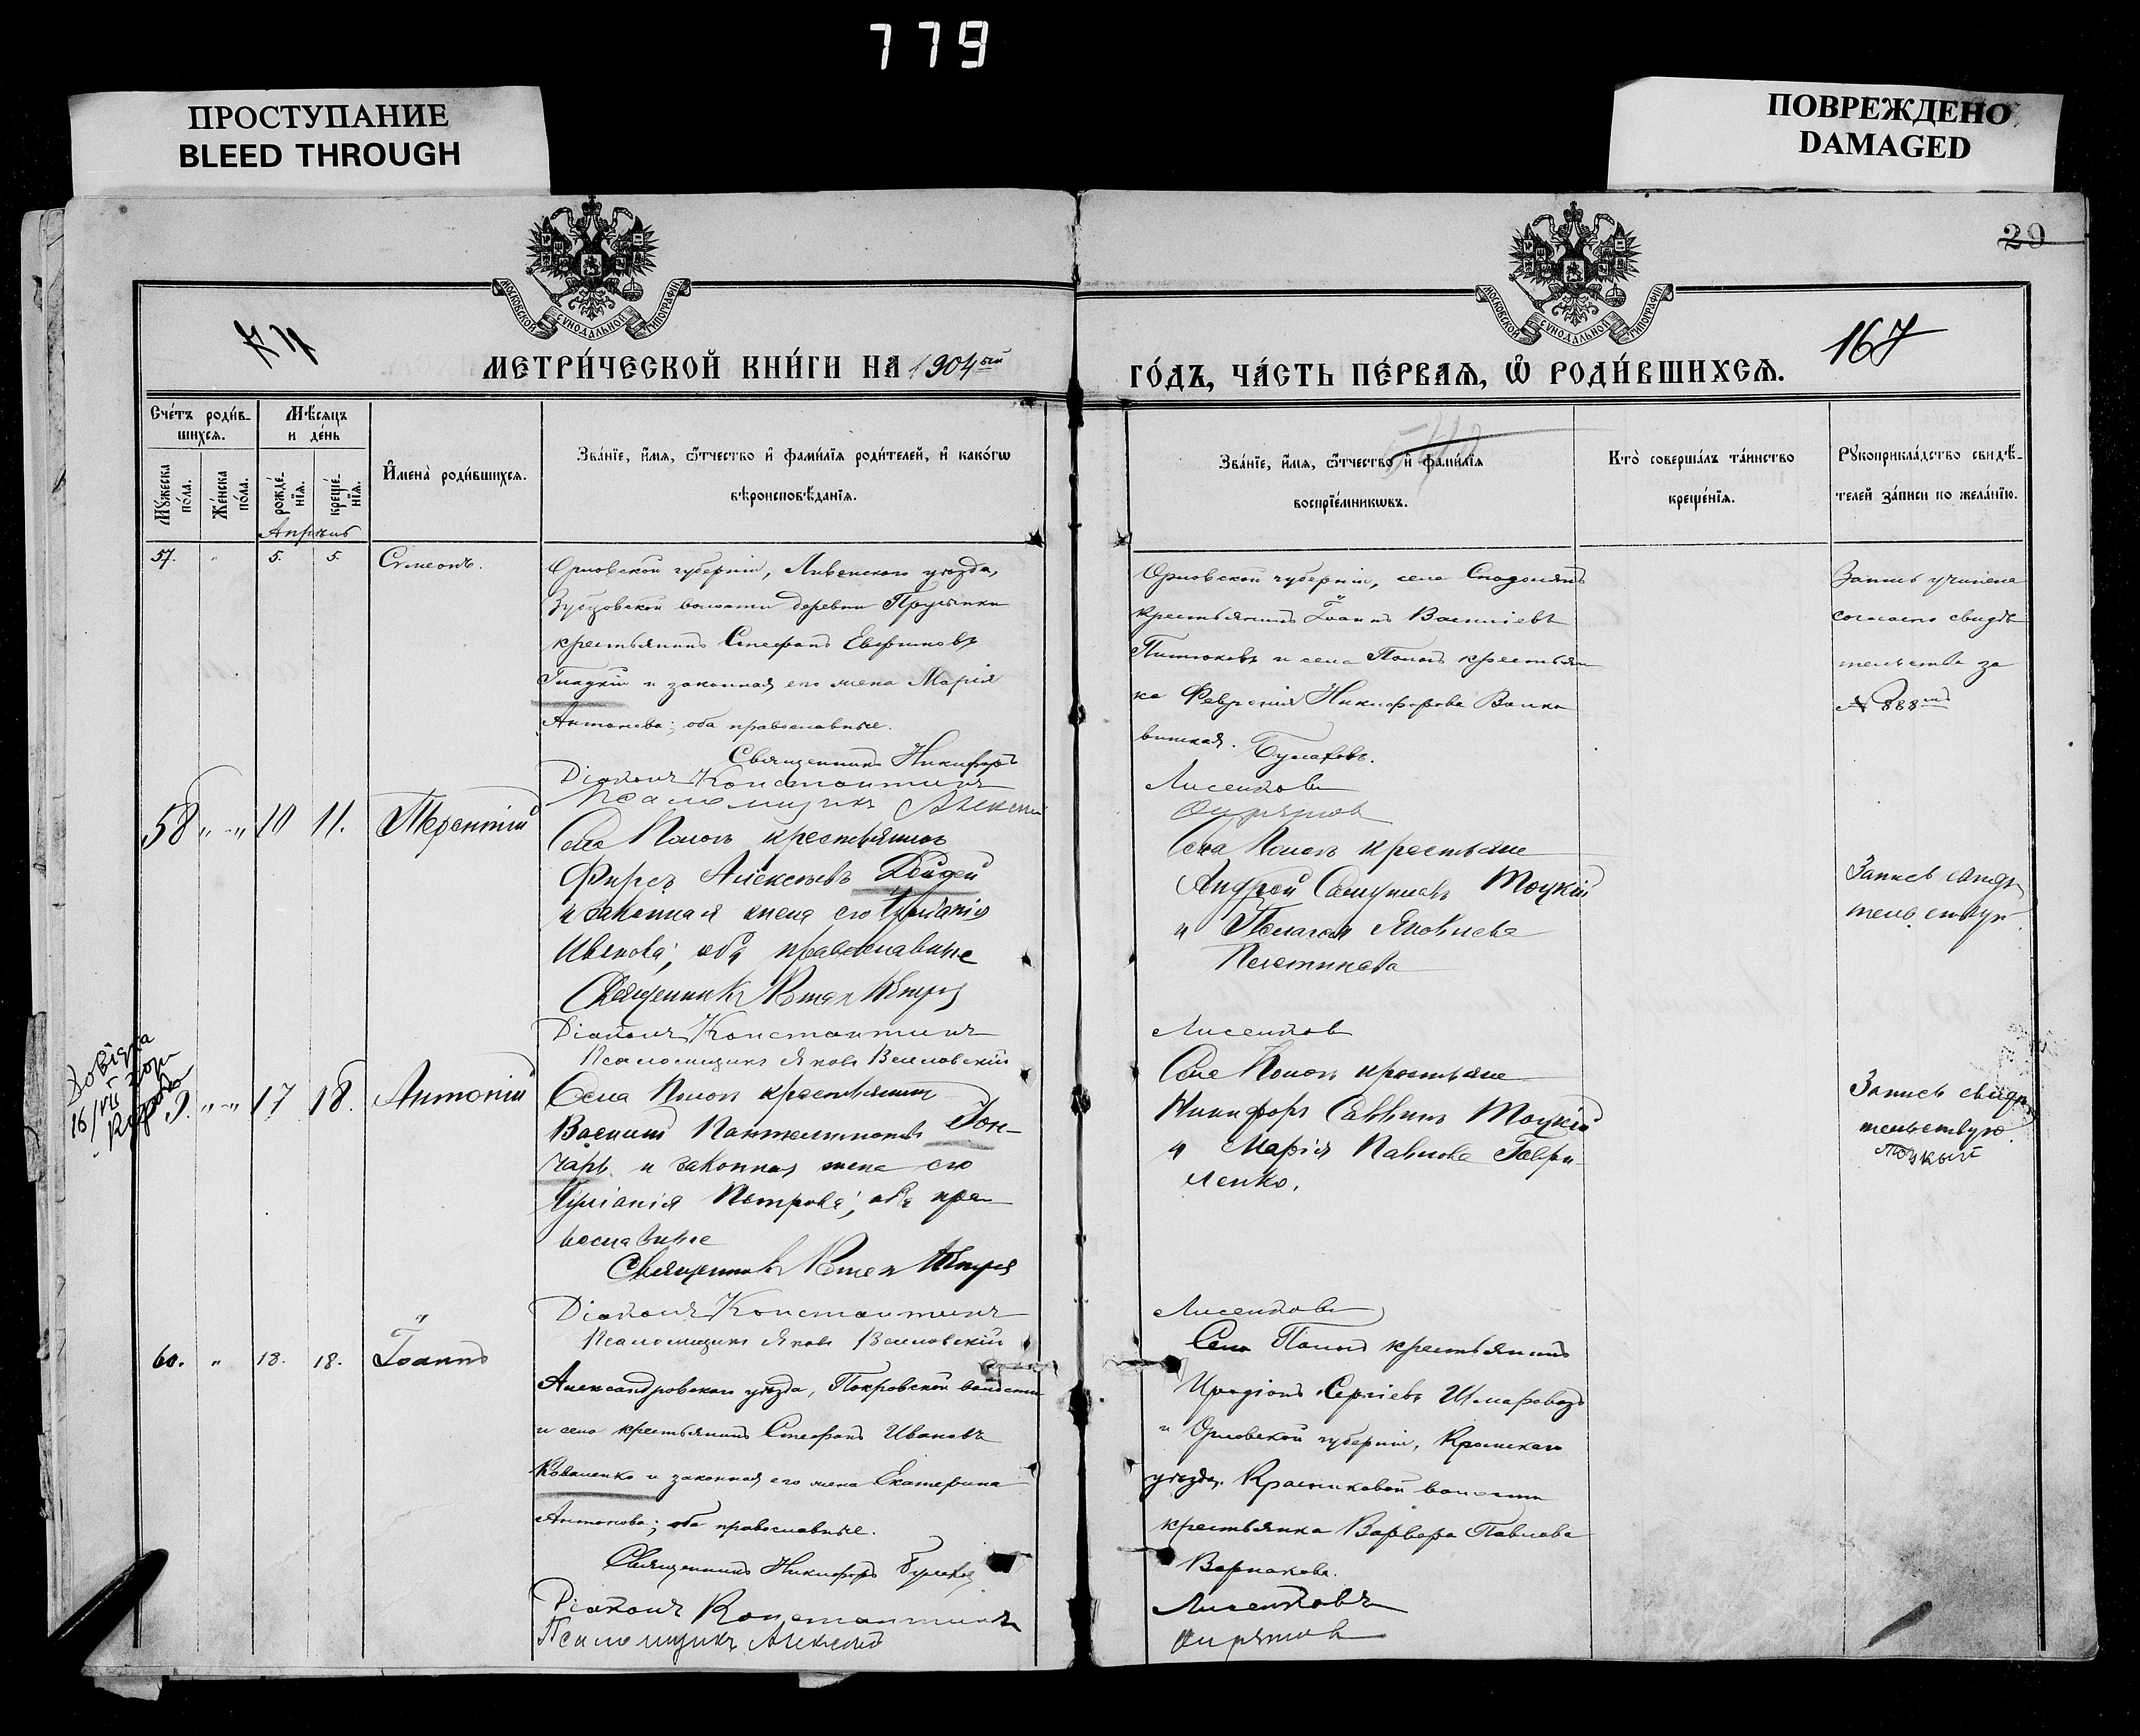 779
ПРОСТУПАНИЕ
BLEED THROUGH
ПОВРЕЖДЕНО
DAMAGED
29
МОСКОВСКОЙ СѴНОДАЛЬНОЙ ТИПОГРАФІИ
МОСКОВСКОЙ СѴНОДАЛЬНОЙ ТИПОГРАФІИ
167
МЕТРИ́ЧЕСКОЙ КНИ́ГИ НА 1904ый
ГО́ДЪ, ЧА́СТЬ ПЕ́РВАѦ, Ѡ҆ РОДИ́ВШИХСѦ.
Сче́тъ роди́в-
шихсѧ.
Мꙋ́жеска по́ла.
Же́нска по́ла.
Мѣ́сѧцъ
и де́нь
рожде́-
нїѧ.
креще́-
нїѧ.
Апрѣль
И҆мена̀ роди́вшихсѧ.
Зва́нїе, и҆́мѧ, ѻ҆́тчество и҆ фами́лїѧ роди́телей, и҆ како́гѡ
вѣроисповѣ́данїѧ.
Зва́нїе, и҆́мѧ, ѻ҆́тчество и҆ фами́лїѧ
воспрїе́мникѡвъ.
Кто̀ соверша́лъ та́инство
креще́нїѧ.
Рꙋкоприкла́дство свидѣ́-
телей за́писи по жела́нїю.
57. " 5. 5. Сѵмеонъ.
Орловской губерніи, Ливенскаго уѣзда,
Зубцовской волости деревни Прусынки
крестьянинъ Стефанъ Евфимовъ
Гладкій и законная его жена Марія
Антонова; оба православные.
Священникъ Никифоръ
Діаконъ Константинъ
Псаломщикъ Алексѣй
Орловской губерніи, села
крестьянинъ Іоаннъ Васильевъ
и села Пологъ крестьян
ка Феврония Никифорова
Булаховъ.
Лисенковъ
Запись учинена
согласно свидѣ
тельства за
№ 888мъ
58 " " 10 11. Терентій
Села Пологъ крестьянинъ
Фирсъ Алексѣевъ Дейдей
и законная жена его Іуліанія
Ивановa; оба православные
Священникъ Петръ
Діаконъ Константинъ
Псаломщикъ Яковъ
Села Пологъ крестьяне
Андрей Самуиловъ Тоцкій
и Пелагея Яковлева
Лисенковъ
Запись свидѣ
тельствую.
Довідка
9. " " 17 18. Антоній
Села Пологъ крестьянинъ
Василій Пантелимоновъ Гон-
чаръ и законная жена его
Іуліанія Петрова; оба пра
вославные
Священникъ Петръ
Діаконъ Константинъ
Псаломщикъ Яковъ
Села Пологъ крестьяне
Никифоръ Саввинъ Тоцкій
и Марія Павлова Гаври-
ленко.
Лисенковъ
Запись свидѣ
тельствую.
Тоцкый
60. " 18. 18. Іоаннъ
Александровскаго уѣзда, Покровской волости
и села крестьянинъ Стефанъ Ивановъ
Коваленко и законная его жена Екатерина
Антонова; оба православные.
Священникъ Никифоръ Булаховъ
Діаконъ Константинъ
Псаломщикъ Алексѣй
Села Пологъ крестьянинъ
Иродіонъ Сергіевъ Шмаровозъ
и Орловской губерніи, Кромскаго
уѣзда, волости
крестьянка Варвара Павлова
Лисенковъ